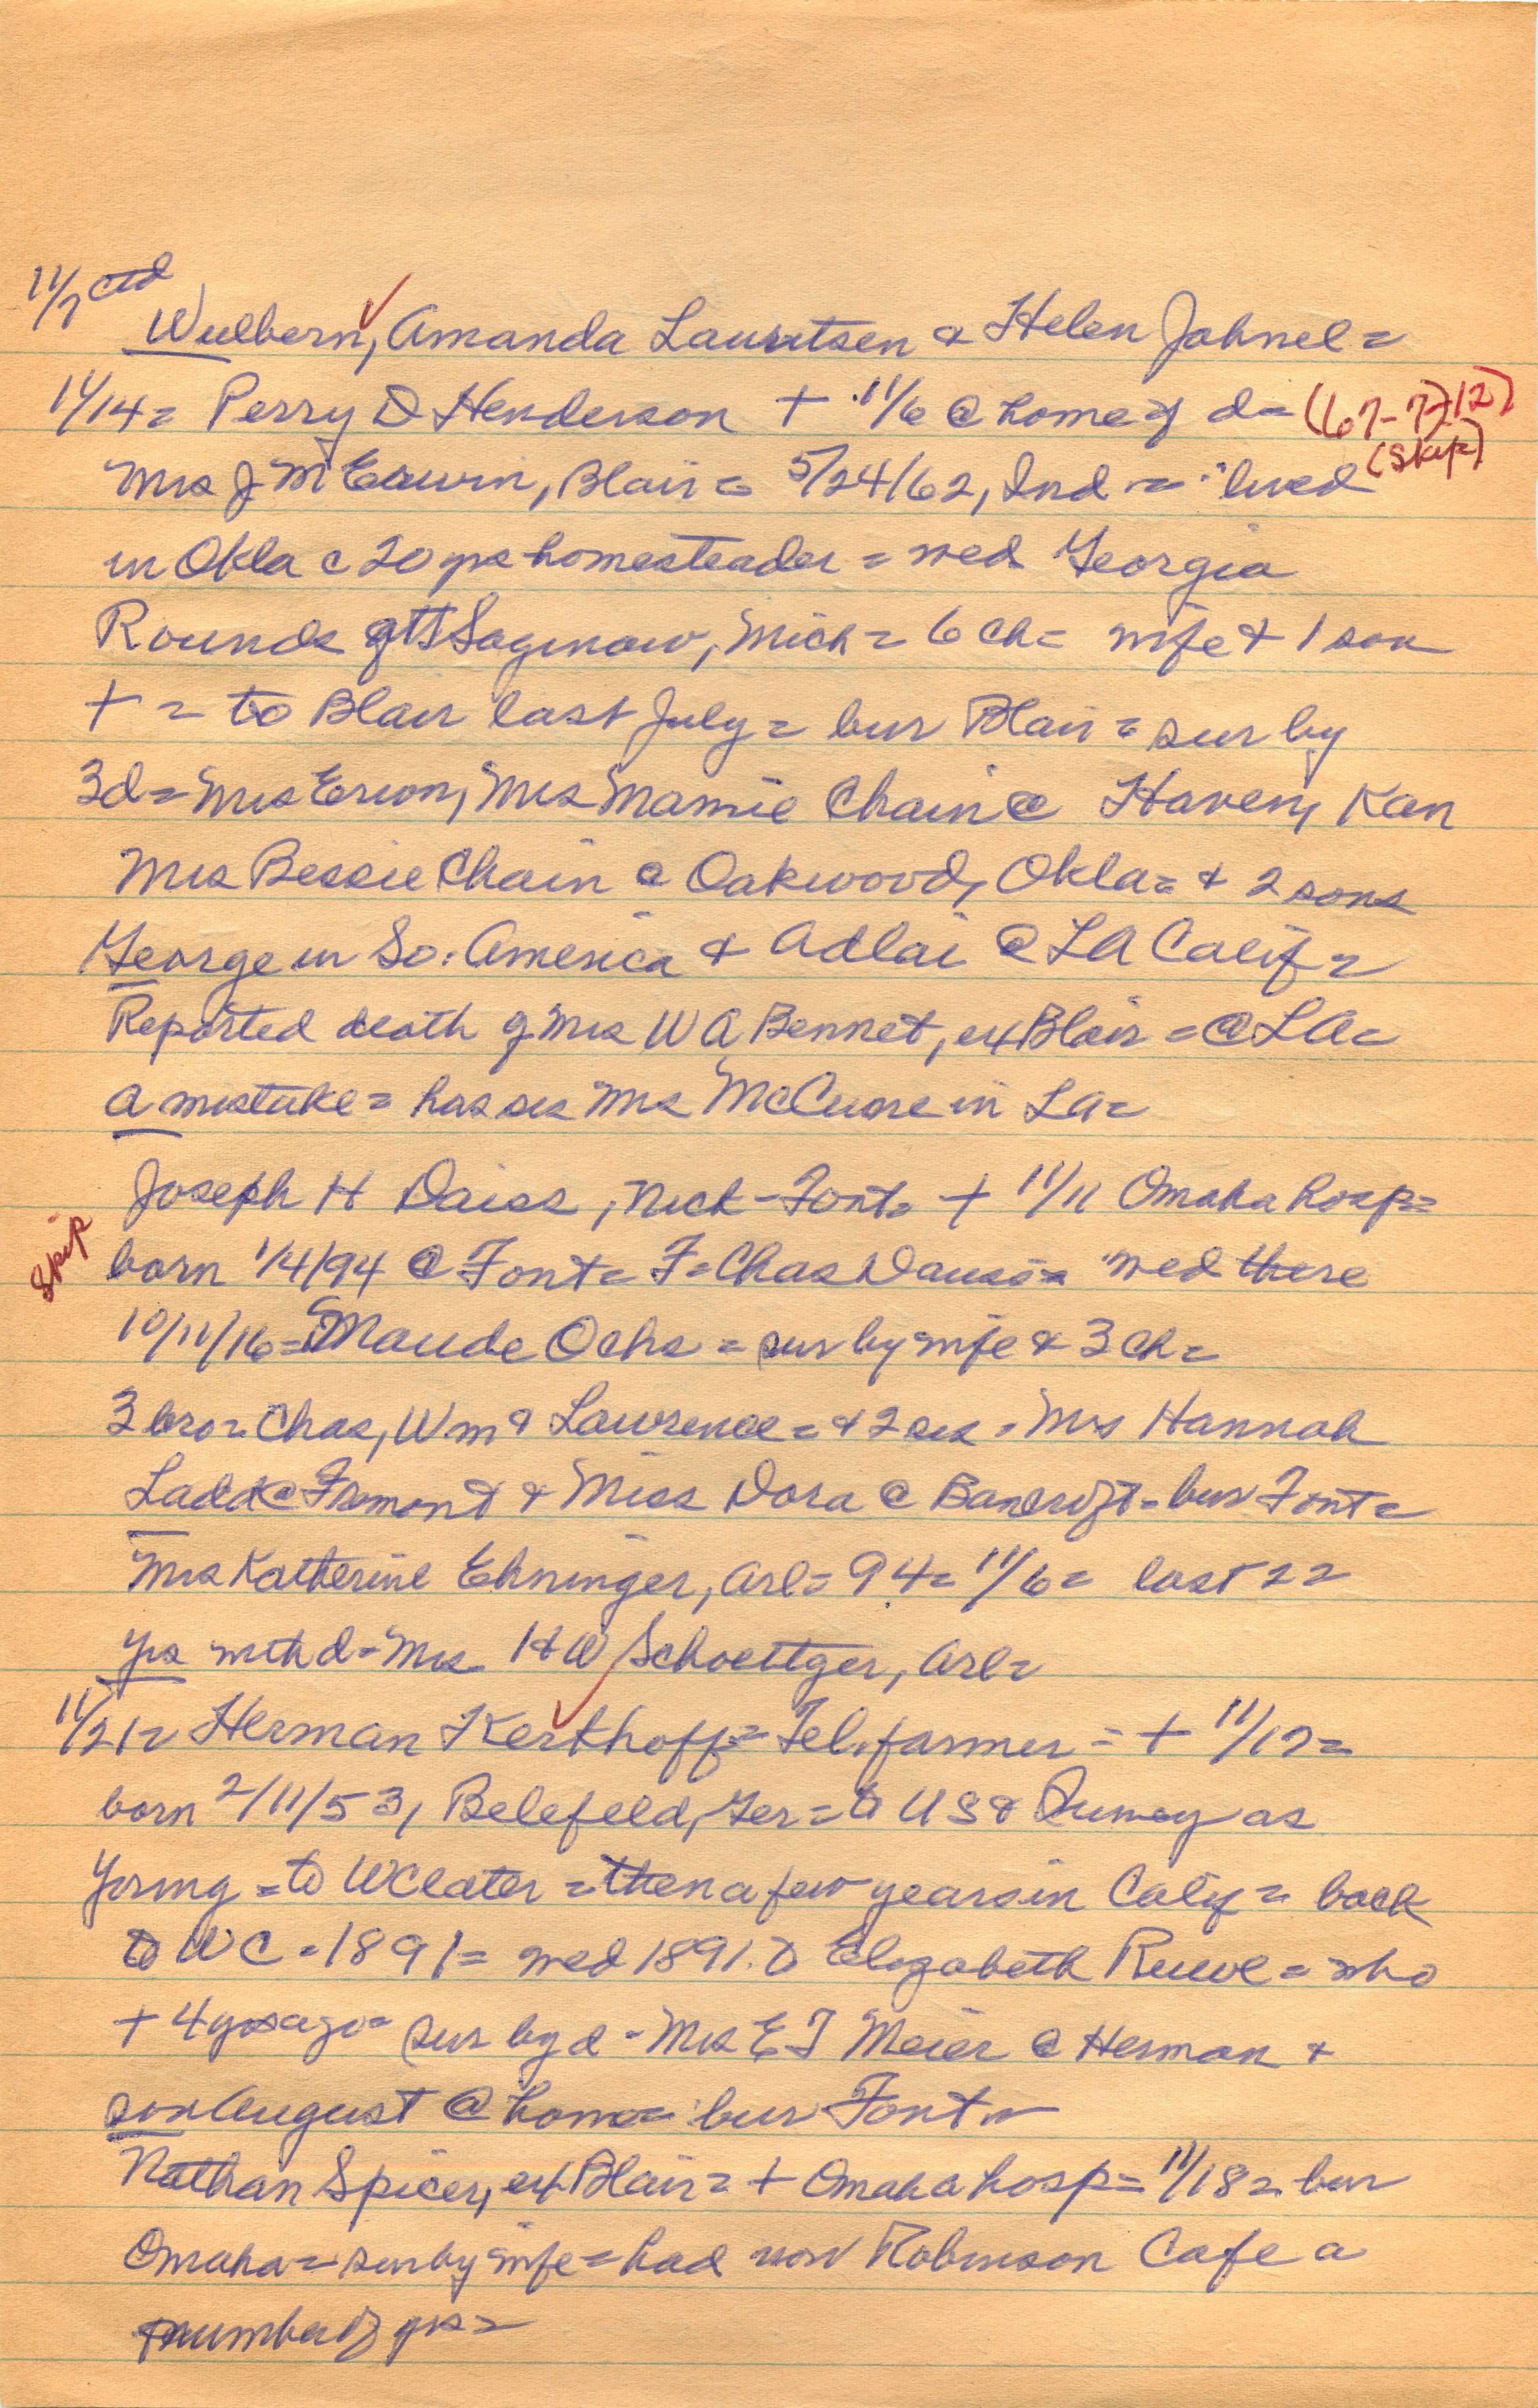 11/7 ctd
Wulbern, Amanda Lauritsen & Helen Jahnel =
11/14 = Perry D Henderson + 11/6 @ home of d = (67-7-12)
(skip)
Mrs J M Erwin, Blair = 5/24/62, Ind = lived
in Okla c 20 yrs homesteader = wed Georgia
Rounds @ Saginaw, Mich = 6 ch = wife & 1 son
+ = to Blair last July = bur Blair = sur by
3d = Mrs Erwin, Mrs Mamie Chain @ Haven, Kan
Mrs Bessie Chain @ Oakwood, Okla = & 2 sons
George in So. America & Adlai @ LA Calif =
Reported death of Mrs W A Bennet, ex Blair = @ LA =
a mistake = has sis Mrs McCune in LA =
Joseph H Daiss, Nick-Font = + 11/11 Omaha hosp =
Skip
born 1/4/94 @ Font = F = Chas = wed there
10/11/16 = Maude Ochs = sur by wife & 3 ch =
3 bro = Chas, Wm & Lawrence = & 2 sis = Mrs Hannah
Ladd @ Fremont & Miss Dora @ Bancroft = bur Font =
Mrs Katherine Ehninger, Arl = 94 = 11/6 = last 22
yrs with d = Mrs H W Schoettger, Arl =
11/21 = Herman Kerkhoff = Tel. farmer = + 11/17 =
born 2/11/53, Belefeld, Ger = to US & as
young = to WC later = then a few years in Calif = back
to WC = 1891 = wed 1891 to Elizabeth Ruwe = who
+ 4 yrs ago = sur by d = Mrs E J Meier @ Herman &
son August @ home = bur Font =
Nathan Spicer, ex Blair = + Omaha hosp = 11/18 = bur
Omaha = sur by wife = had now Robinson Cafe a
number of yrs =